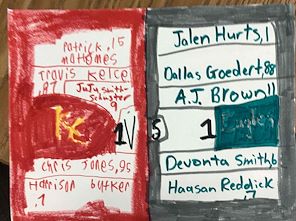 Patrick, 15
Travis Kelce
,87
JuJu Smith-
Schuster
9
KC
1
V
Chris Jones, 95
Harrison butker
,7
Jalen Hurts, 1
Dallas Goedert, 88
A.J. Brown 11
5
1
Eagles
Devonta Smith 6
Haasan Reddick
,7